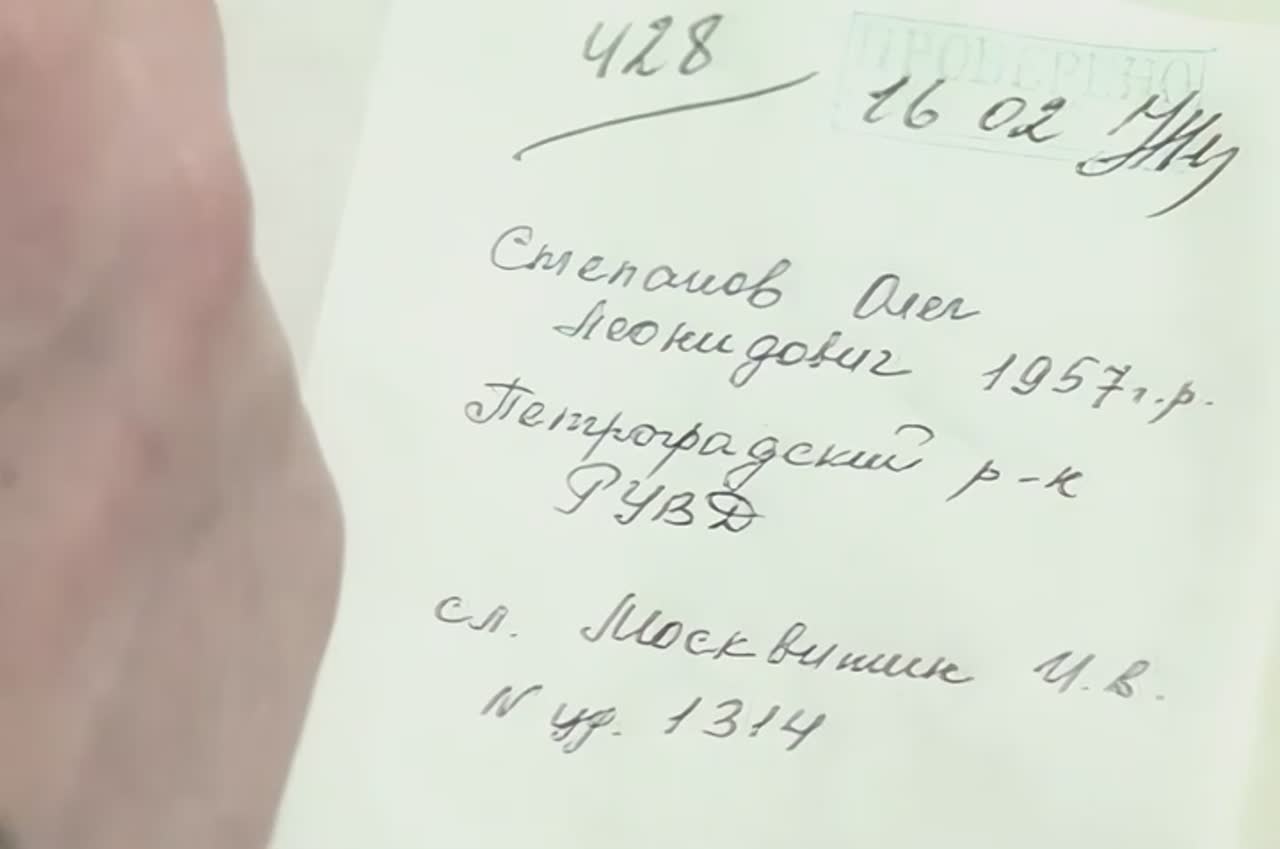 428
ПРОВЕРЕНО
16 02
Степанов Олег
Леонидович 1957 г.р.
Петроградский р-н
РУВД
сл. Москвитин И.В.
N уд. 1314